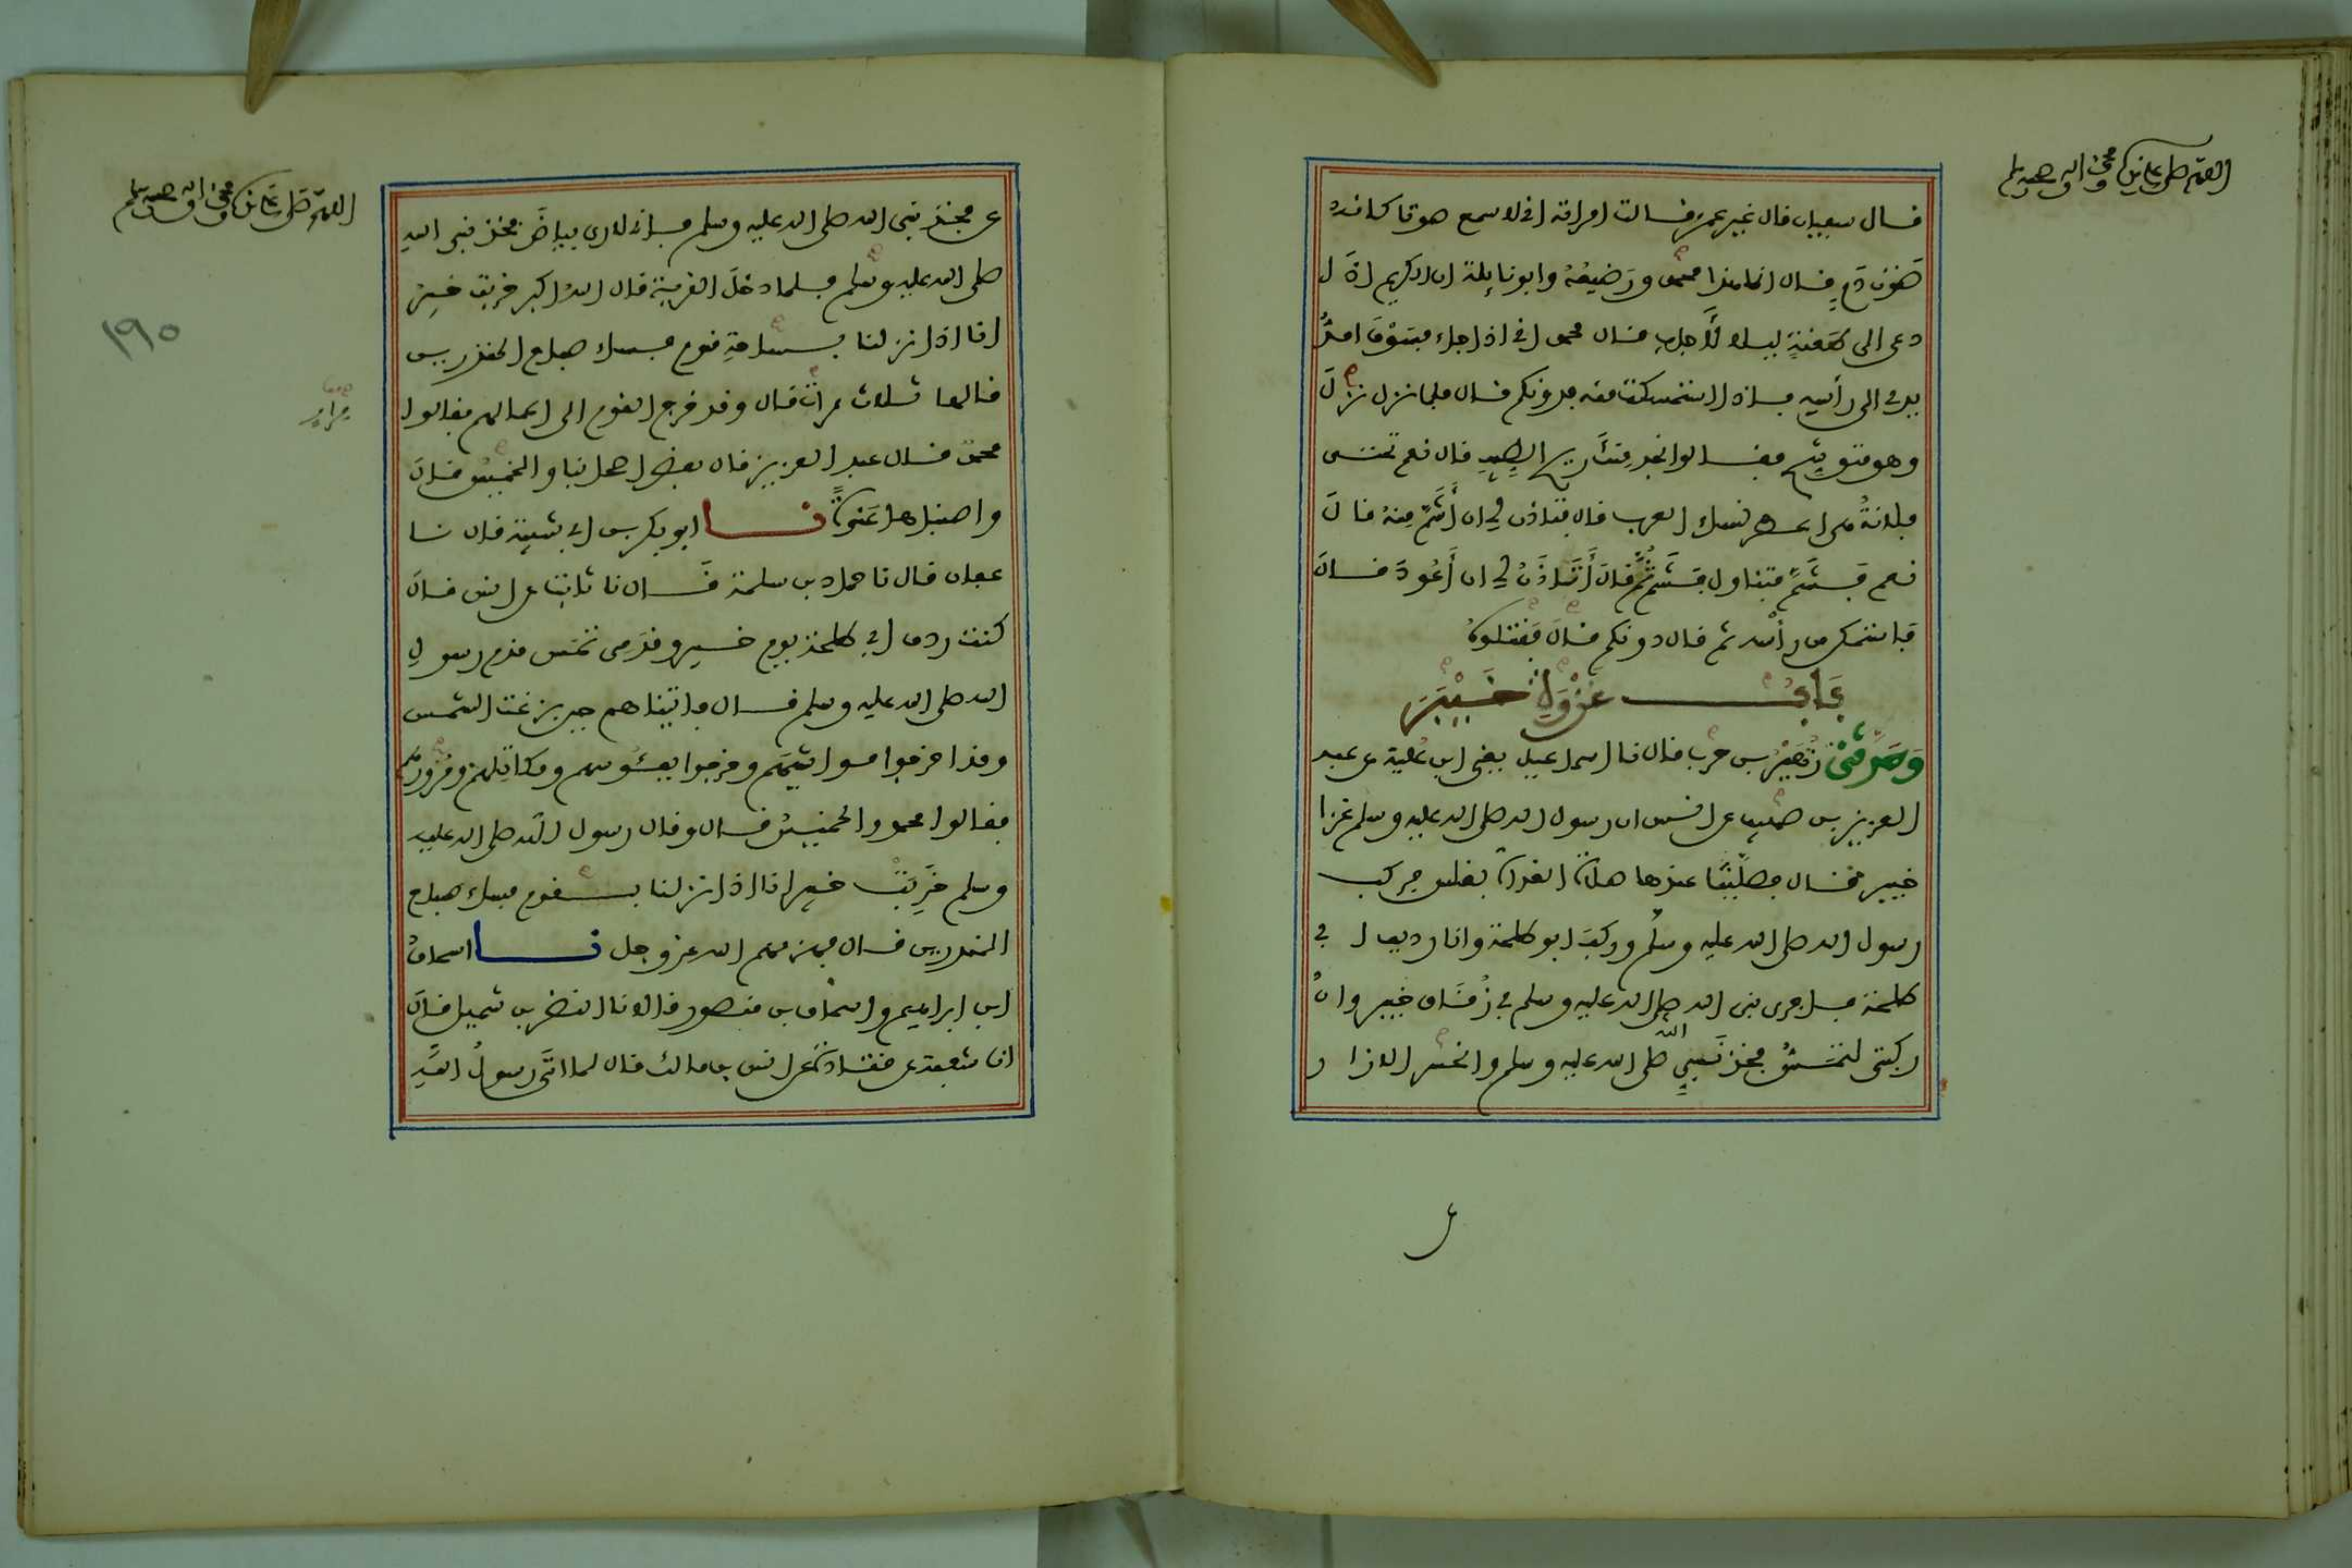 اللهم صل على سيدنا محمد وآله وصحبه وسلم
قال سفيان قال غير عمرو قالت امراته اني لاسمع صوتا كانه
صَوْتُ دَمٍ قال انما هذا محمد ورَضيعُهُ وابو نايلة ان الكريم اذَا
دعى الى طَعْنَةٍ ليلا لأَجاب قال محمد اني اذا جاء فسَوْفَ امدُّ
يدي الى رأسِهِ فاذا استمكنت منه فدونكم قال فلما نزل نزلَ
وهو متوشح فقالوا نجد مِنْكَ ريح الطيب قال نعم تحتى
فلانةُ هى اعطر نساء العرب قال فتاذن لي ان أَشُمَّ مِنهُ قالَ
نعم فَشُمَّ فتناول فَشَمَّ ثُمَّ قالَ أَتَاذَنُ لي ان أَعُودَ قال
فاستمكن من رأسه ثم قال دونكم قالَ فَقَتَلوهُ
بَابُ غزوة خَيْبَرَ
وَحَدَّثَنِي زُهَيْرُ بن حرب قال نا اسماعيل يعني ابن عُلية عن عبد
العزيز بن صهيب عن انس ان رسول الله صلى الله عليه وسلم غزا
خيبر قال فصلَّيْنَا عندها صلاة الغداة بغلس فركب
رسول الله صلى الله عليه وسلم وركبَ ابو طلحة وانا رديف ابي
طلحة فاجرى نبى الله صلى الله عليه وسلم في زُقَاق خيبر وانَّ
ركبتى لتمَسُّ فخذ نَبيِّ الله صلى الله عليه وسلم وانحسر الازار
اللهم صل على سيدنا محمد وآله وصحبه وسلم
١٩٥
عن فخذ نبى الله صلى الله عليه وسلم فاني لارى بياضَ فخذ نبي الله
صلى الله عليه وسلم فلما دخَلَ القرية قال الله اكبر خربت خيبرُ
انا اذا نزلنا بساحةِ قوم فساء صباح المنذرين
قالها ثلاث مرات قال وقد خرج القوم الى اعمالهم فقالوا
محمد قال عبد العزيز قال بعض اصحابنا والخميسُ قالَ
واصبناها عَنْوَةً نا ابو بكر بن ابي شيبة قال نا
عفان قال نا حماد بن سلمة قَال نا ثابت عن انس قالَ
كنت ردف ابي طلحة يوم خيبر وقدَمِى تمَس قدم رسولِ
الله صلى الله عليه وسلم قال فاتيناهم حين بزغت الشمس
وقد اخرجوا مواشيَهم وخرجوا بفئُوسهم ومكاتِلهم ومُرُورهم
فقالوا محمد والخميسُ قال وقال رسول الله صلى الله عليه
وسلم خَرِبَتْ خيبر انا اذا نزلنا بساحة قوم فساء صباح
المنذرين قال فهزمهم الله عز وجل نا اسحاقُ
ابن ابراهيم واسحاق بن منصور قالا نا النضر بن شميل قالَ
انا شعبة عن قتادة عن انس بن مالك قال لما اتَى رسولُ اللهِ